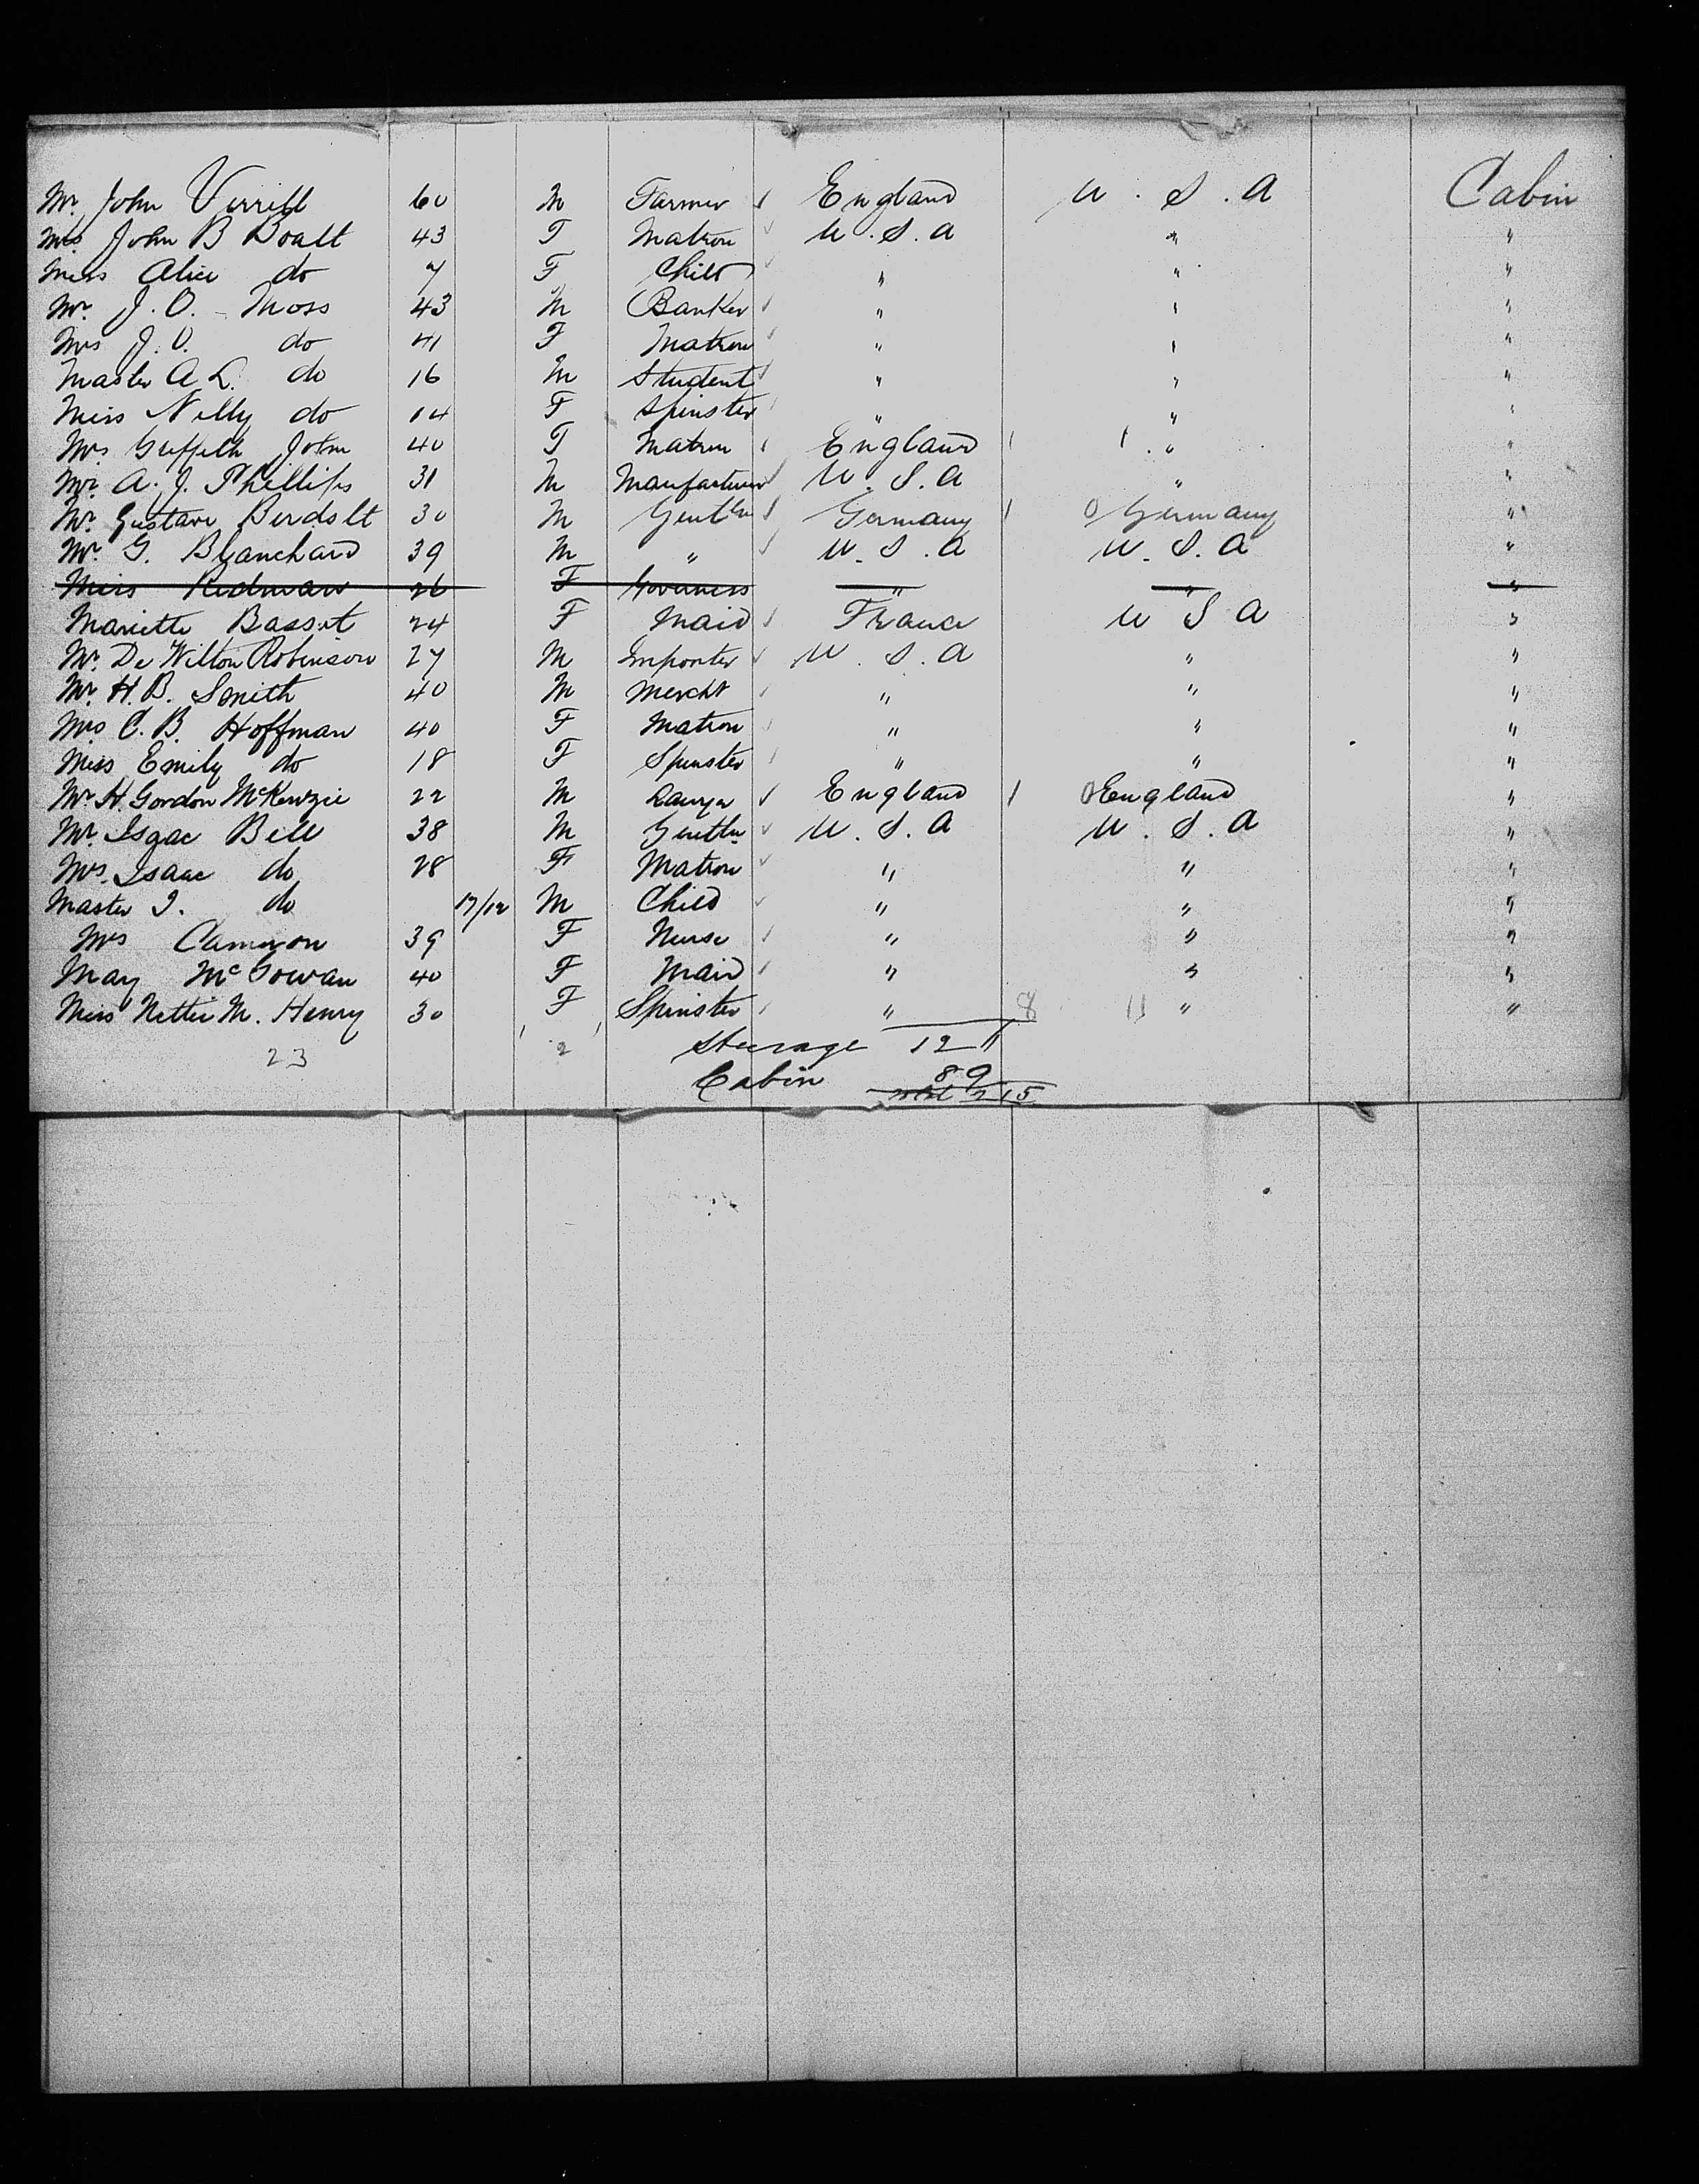 Mr. John Verrill 60 M Farmer England U.S.A Cabin
Mrs John B Boalt 43 F Matron U.S.A " "
Miss Alice do 7 F Child " " "
Mr. J.O. Moss 43 M Banker " " "
Mrs J.O. do 41 F Matron " " "
Master A L. do 16 M Student " " "
Miss Nelly do 14 F Spinster " " "
Mrs Griffith John 40 F Matron England 1 1 " "
Mr. A. J. Phillips 31 M Manufacturer U.S.A " "
Mr. Gustave 30 M Gentln Germany 1 0 Germany "
Mr. G. Blanchard 39 M " U.S.A U.S.A "
Miss Redman 26 F Governess " " "
Mariette Basset 24 F Maid France U S A "
Mr. De Wilton Robinson 27 M Importer U.S.A " "
Mr. H.B. Smith 40 M Mercht " " "
Mrs C.B. Hoffman 40 F Matron " " "
Miss Emily do 18 F Spinster " " "
Mr. H. Gordon McKenzie 22 M Lawyer England 1 0 England "
Mr. Isaac Bell 38 M Gentln U.S.A U.S.A "
Mrs. Isaac do 28 F Matron " " "
Master I. do M Child " " "
Mrs Cameron 39 F Nurse " " "
May McGowan 40 F Maid " " "
Miss Nettie M. Henry 30 F Spinster " 8 11 " "
23 2 Steerage
Cabin 89
215